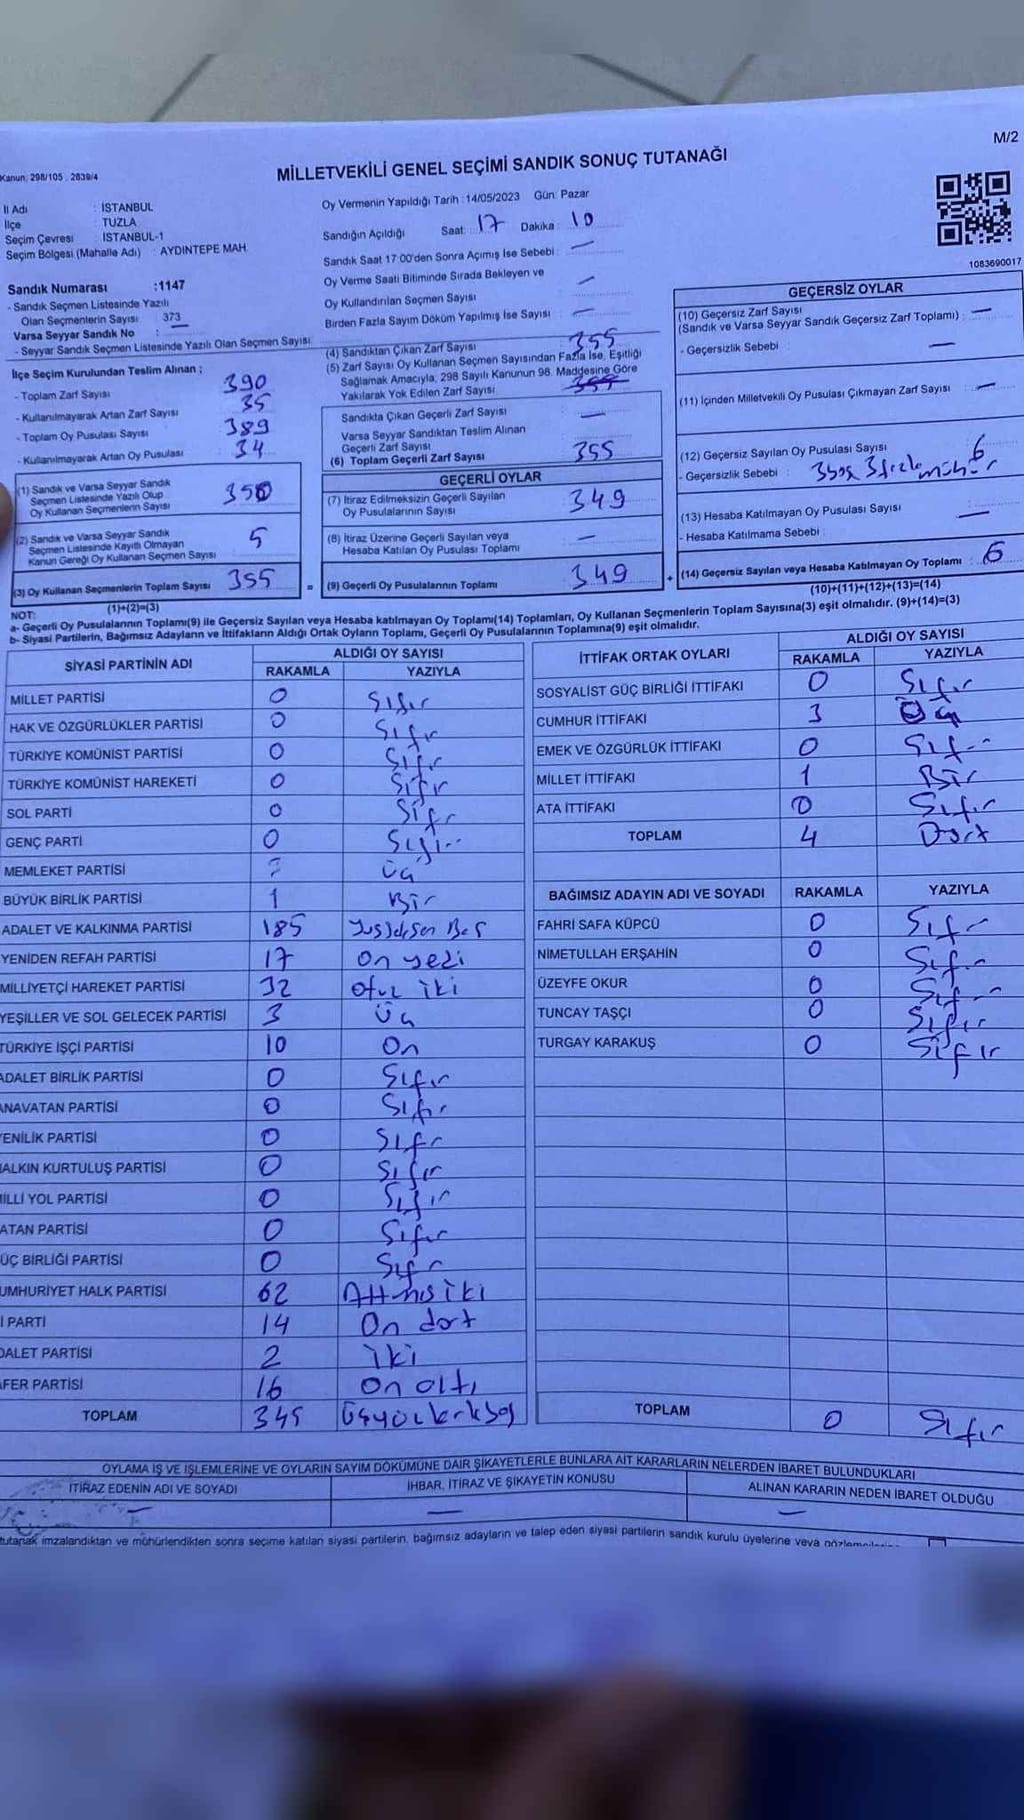 M/2
Kanun: 298/105 . 2839/4
MİLLETVEKİLİ GENEL SEÇİMİ SANDIK SONUÇ TUTANAĞI
İl Adı : İSTANBUL
İlçe : TUZLA
Seçim Çevresi : İSTANBUL-1
Seçim Bölgesi (Mahalle Adı) : AYDINTEPE MAH.
Sandık Numarası :1147
- Sandık Seçmen Listesinde Yazılı
Olan Seçmenlerin Sayısı : 373
Varsa Seyyar Sandık No : —
- Seyyar Sandık Seçmen Listesinde Yazılı Olan Seçmen Sayısı:
Oy Vermenin Yapıldığı Tarih :14/05/2023 Gün: Pazar
Sandığın Açıldığı Saat: 17 Dakika: 10
Sandık Saat 17:00'den Sonra Açımış İse Sebebi : —
Oy Verme Saati Bitiminde Sırada Bekleyen ve
Oy Kullandırılan Seçmen Sayısı —
Birden Fazla Sayım Döküm Yapılmış İse Sayısı : —
1083690017
İlçe Seçim Kurulundan Teslim Alınan ;
- Toplam Zarf Sayısı 390
- Kullanılmayarak Artan Zarf Sayısı 35
- Toplam Oy Pusulası Sayısı 389
- Kullanılmayarak Artan Oy Pusulası 34
(1) Sandık ve Varsa Seyyar Sandık
Seçmen Listesinde Yazılı Olup
Oy Kullanan Seçmenlerin Sayısı 350
(2) Sandık ve Varsa Seyyar Sandık
Seçmen Listesinde Kayıtlı Olmayan
Kanun Gereği Oy Kullanan Seçmen Sayısı 5
(3) Oy Kullanan Seçmenlerin Toplam Sayısı 355
(1)+(2)=(3)
(4) Sandıktan Çıkan Zarf Sayısı 355
(5) Zarf Sayısı Oy Kullanan Seçmen Sayısından Fazla İse, Eşitliği
Sağlamak Amacıyla, 298 Sayılı Kanunun 98. Maddesine Göre
Yakılarak Yok Edilen Zarf Sayısı
Sandıkta Çıkan Geçerli Zarf Sayısı —
Varsa Seyyar Sandıktan Teslim Alınan
Geçerli Zarf Sayısı
(6) Toplam Geçerli Zarf Sayısı 355
GEÇERLİ OYLAR
(7) İtiraz Edilmeksizin Geçerli Sayılan
Oy Pusulalarının Sayısı 349
(8) İtiraz Üzerine Geçerli Sayılan veya
Hesaba Katılan Oy Pusulası Toplamı —
= (9) Geçerli Oy Pusulalarının Toplamı 349
GEÇERSİZ OYLAR
(10) Geçersiz Zarf Sayısı —
(Sandık ve Varsa Seyyar Sandık Geçersiz Zarf Toplamı) :
- Geçersizlik Sebebi : —
(11) İçinden Milletvekili Oy Pusulası Çıkmayan Zarf Sayısı : —
(12) Geçersiz Sayılan Oy Pusulası Sayısı : 6
- Geçersizlik Sebebi : 3 boş 3 fazla mühür
(13) Hesaba Katılmayan Oy Pusulası Sayısı : —
- Hesaba Katılmama Sebebi :
+ (14) Geçersiz Sayılan veya Hesaba Katılmayan Oy Toplamı : 6
(10)+(11)+(12)+(13)=(14)
NOT:
a- Geçerli Oy Pusulalarının Toplamı(9) ile Geçersiz Sayılan veya Hesaba katılmayan Oy Toplamı(14) Toplamları, Oy Kullanan Seçmenlerin Toplam Sayısına(3) eşit olmalıdır. (9)+(14)=(3)
b- Siyasi Partilerin, Bağımsız Adayların ve İttifakların Aldığı Ortak Oyların Toplamı, Geçerli Oy Pusulalarının Toplamına(9) eşit olmalıdır.
SİYASİ PARTİNİN ADI ALDIĞI OY SAYISI
RAKAMLA YAZIYLA
MİLLET PARTİSİ 0 Sıfır
HAK VE ÖZGÜRLÜKLER PARTİSİ 0 Sıfır
TÜRKİYE KOMÜNİST PARTİSİ 0 Sıfır
TÜRKİYE KOMÜNİST HAREKETİ 0 Sıfır
SOL PARTİ 0 Sıfır
GENÇ PARTİ 0 Sıfır
MEMLEKET PARTİSİ 3 üç
BÜYÜK BİRLİK PARTİSİ 1 Bir
ADALET VE KALKINMA PARTİSİ 185 Yüzseksen Beş
YENİDEN REFAH PARTİSİ 17 On yedi
MİLLİYETÇİ HAREKET PARTİSİ 32 Otuz iki
YEŞİLLER VE SOL GELECEK PARTİSİ 3 Üç
TÜRKİYE İŞÇİ PARTİSİ 10 On
ADALET BİRLİK PARTİSİ 0 Sıfır
ANAVATAN PARTİSİ 0 Sıfır
YENİLİK PARTİSİ 0 Sıfır
HALKIN KURTULUŞ PARTİSİ 0 Sıfır
MİLLİ YOL PARTİSİ 0 Sıfır
VATAN PARTİSİ 0 Sıfır
GÜÇ BİRLİĞİ PARTİSİ 0 Sıfır
CUMHURİYET HALK PARTİSİ 62 Altmış iki
İYİ PARTİ 14 On dört
ADALET PARTİSİ 2 iki
ZAFER PARTİSİ 16 On altı
TOPLAM 345 Üçyüzkırkbeş
İTTİFAK ORTAK OYLARI ALDIĞI OY SAYISI
RAKAMLA YAZIYLA
SOSYALİST GÜÇ BİRLİĞİ İTTİFAKI 0 Sıfır
CUMHUR İTTİFAKI 3 Üç
EMEK VE ÖZGÜRLÜK İTTİFAKI 0 Sıfır
MİLLET İTTİFAKI 1 Bir
ATA İTTİFAKI 0 Sıfır
TOPLAM 4 Dört
BAĞIMSIZ ADAYIN ADI VE SOYADI RAKAMLA YAZIYLA
FAHRİ SAFA KÜPCÜ 0 Sıfır
NİMETULLAH ERŞAHİN 0 Sıfır
ÜZEYFE OKUR 0 Sıfır
TUNCAY TAŞÇI 0 Sıfır
TURGAY KARAKUŞ 0 Sıfır
TOPLAM 0 Sıfır
OYLAMA İŞ VE İŞLEMLERİNE VE OYLARIN SAYIM DÖKÜMÜNE DAİR ŞİKAYETLERLE BUNLARA AİT KARARLARIN NELERDEN İBARET BULUNDUKLARI
İTİRAZ EDENİN ADI VE SOYADI İHBAR, İTİRAZ VE ŞİKAYETİN KONUSU ALINAN KARARIN NEDEN İBARET OLDUĞU
— — —
tutanak imzalandıktan ve mühürlendikten sonra seçime katılan siyasi partilerin, bağımsız adayların ve talep eden siyasi partilerin sandık kurulu üyelerine veya